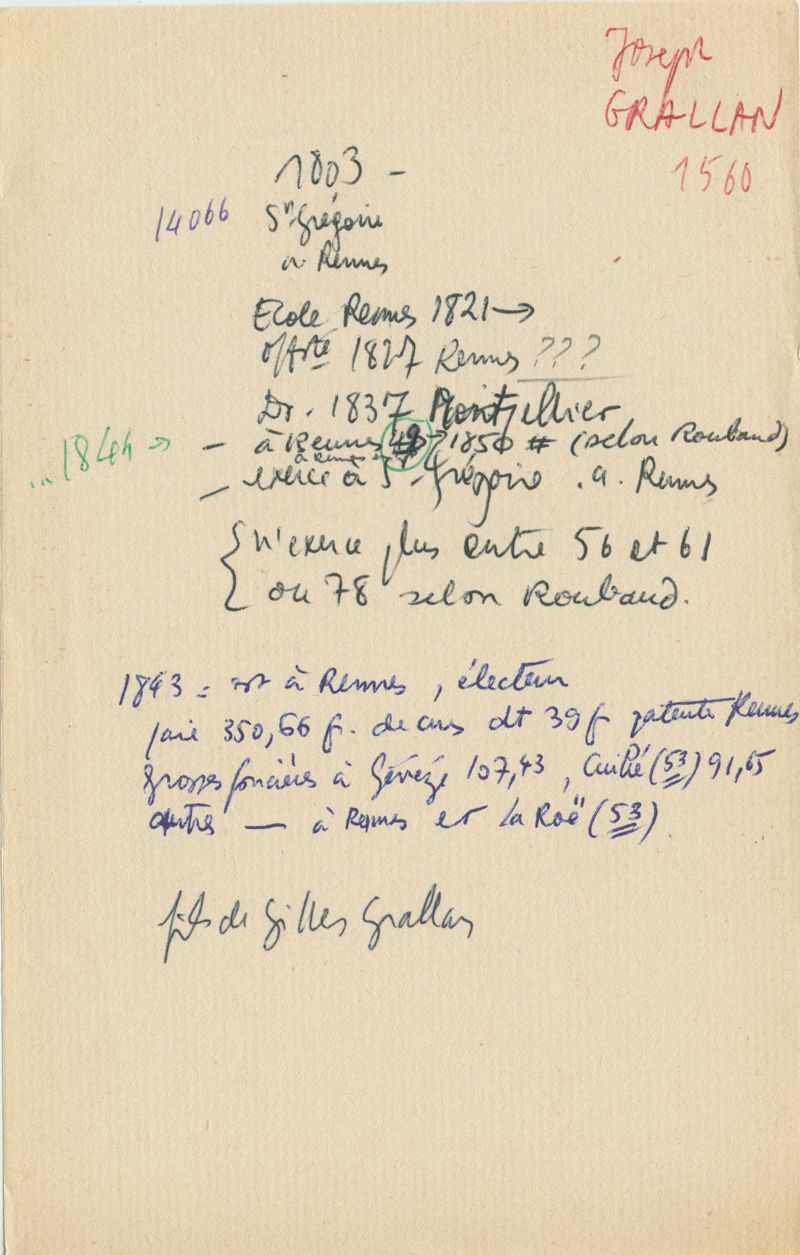 Joseph
GRALLAN
1560
1803 -
14066 St Grégoire
a. Rennes
Ecole Rennes 1821 →
off. sté 1827 Rennes ???
Dr. 1837 Montpellier
...1844 → - à Rennes → 1850 # (selon Roubaud)
à Rennes en
- exerce à St Grégoire . a. Rennes
{ n'exerce plus entre 56 et 61
ou 78 selon Roubaud.
1843 = est à Rennes, électeur
paie 350,66 f. de cens dt 39 f patente Rennes
grosses foncières à Gévezé 107,43, Cuillé (53) 91,65
autres — à Rennes et La Roë (53)
fils de Gilles Grallan